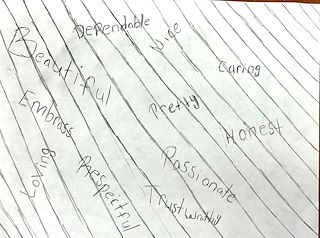 Dependable
Nice
Beautiful
Caring
Embrass
Pretty
Honest
Loving
Respectful
Passionate
Trustworthy